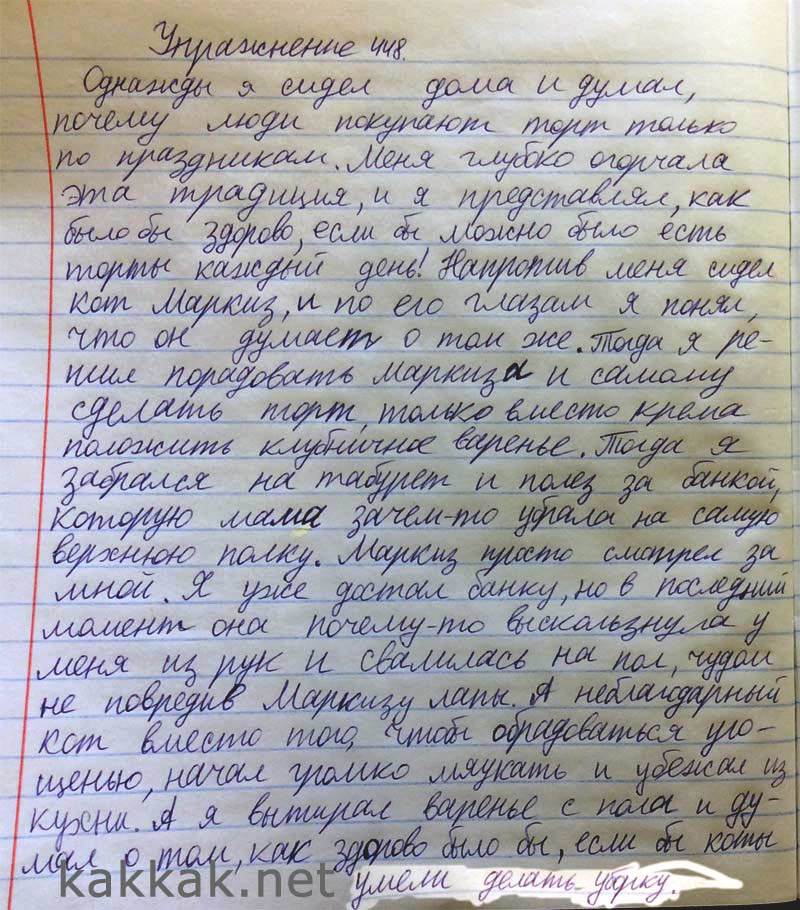 Упражнение 448.
Однажды я сидел дома и думал,
почему люди покупают торт только
по праздникам. Меня глубко огорчала
эта традиция, и я представлял, как
было бы здорово, если бы можно было есть
торты каждый день! Напротив меня сидел
кот Маркиз, и по его глазам я понял,
что он думает о том же. Тогда я ре-
шил порадовать Маркиза и самому
сделать торт, только вместо крема
положить клубничное варенье. Тогда я
забрался на табурет и полез за банкой,
которую мама зачем-то убрала на самую
верхнюю полку. Маркиз просто смотрел за
мной. Я уже достал банку, но в последний
момент она почему-то выскользнула у
меня из рук и свалилась на пол, чудом
не повредив Маркизу лапы. А неблагодарный
кот вместо того, чтобы обрадоваться уго-
щенью, начал громко мяукать и убежал из
кухни. А я вытирал варенье с пола и ду-
мал о том, как здорово было бы, если бы коты
умели делать уборку.
kakkak.net